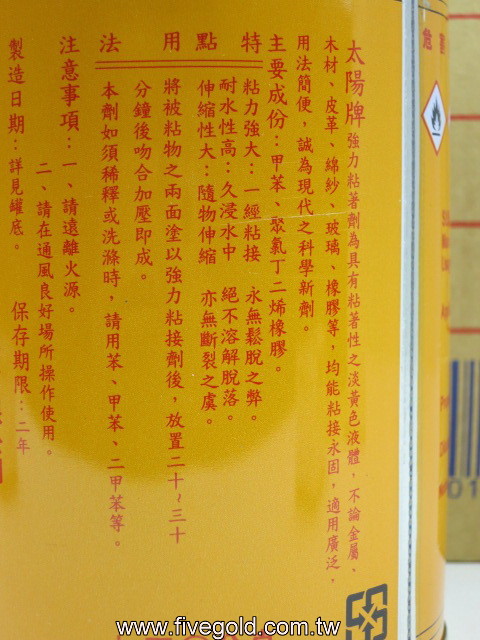 太陽牌強力粘著劑為具有粘著性之淡黃色液體，不論金屬、
木材、皮革、綿紗、玻璃、橡膠等，均能粘接永固，適用廣泛，
用法簡便，誠為現代之科學新劑。
主要成份：甲苯、聚氯丁二烯橡膠。
特點
粘力強大：一經粘接 永無鬆脫之弊。
耐水性高：久浸水中 絕不溶解脫落。
伸縮性大：隨物伸縮 亦無斷裂之虞。
用法
將被粘物之兩面塗以強力粘接劑後，放置二十~三十
分鐘後吻合加壓即成。
本劑如須稀釋或洗滌時，請用苯、甲苯、二甲苯等。
注意事項：一、請遠離火源。
二、請在通風良好場所操作使用。
製造日期：詳見罐底。 保存期限：二年
www.fivegold.com.tw